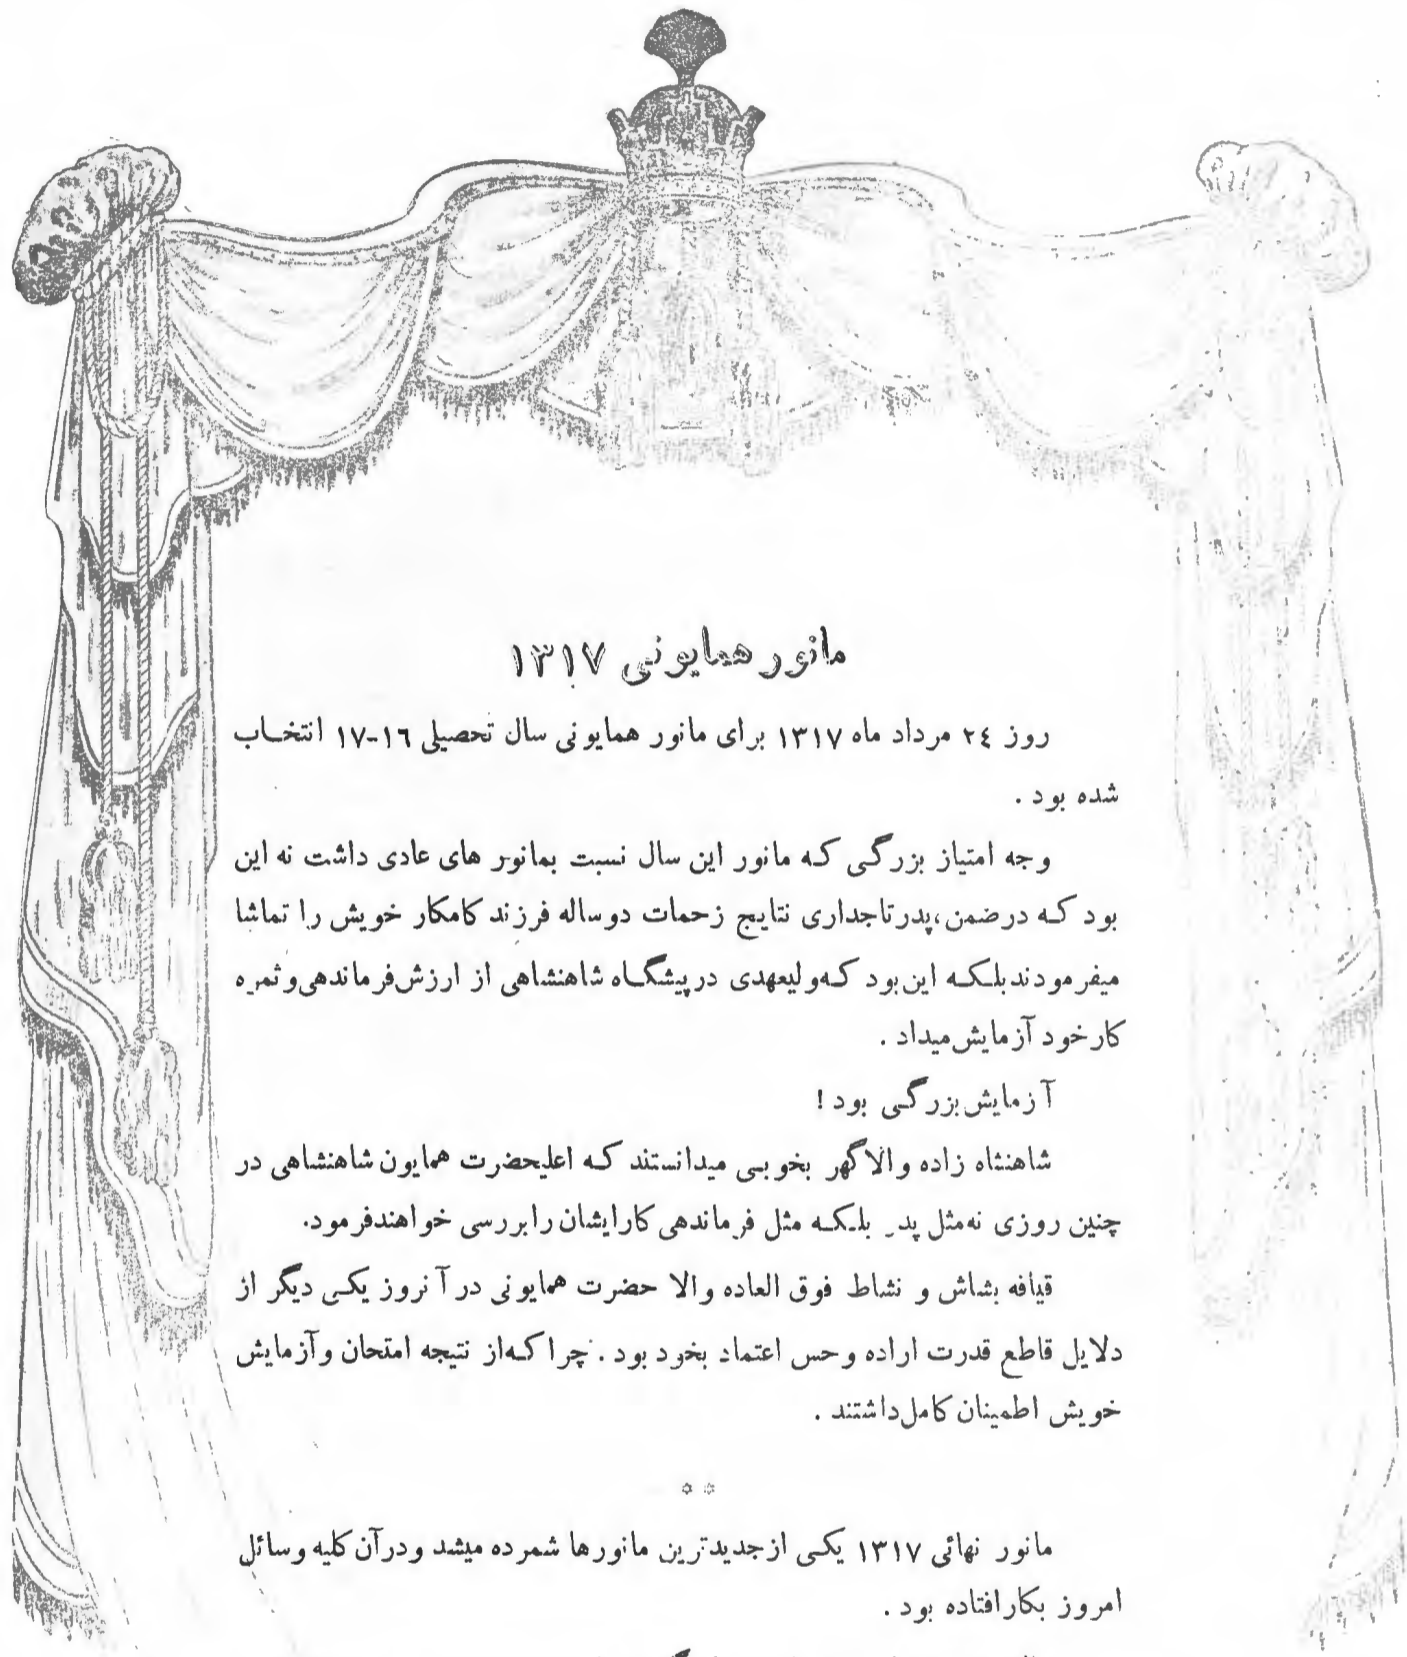 مانور همایونی ۱۳۱۷
روز ۲٤ مرداد ماه ۱۳۱۷ برای مانور همایونی سال تحصیلی ۱٦-۱۷ انتخاب
شده بود .
وجه امتیاز بزرگی که مانور این سال نسبت بمانور های عادی داشت نه این
بود که درضمن، پدرتاجداری نتایج زحمات دوساله فرزند کامکار خویش را تماشا
میفرمودند بلکه این بود که ولیعهدی در پیشگاه شاهنشاهی از ارزش فرماندهی و ثمره
کار خود آزمایش میداد .
آزمایش بزرگی بود !
شاهنشاه زاده والاگهر بخوبی میدانستند که اعلیحضرت همایون شاهنشاهی در
چنین روزی نه مثل پدر بلکه مثل فرماندهی کارایشان را بررسی خواهند فرمود.
قیافه بشاش و نشاط فوق العاده والا حضرت همایونی در آنروز یکی دیگر از
دلایل قاطع قدرت اراده و حس اعتماد بخود بود . چرا که از نتیجه امتحان و آزمایش
خویش اطمینان کامل داشتند .
☆ ☆
مانور نهائی ۱۳۱۷ یکی از جدیدترین مانورها شمرده میشد و در آن کلیه وسائل
امروز بکار افتاده بود .